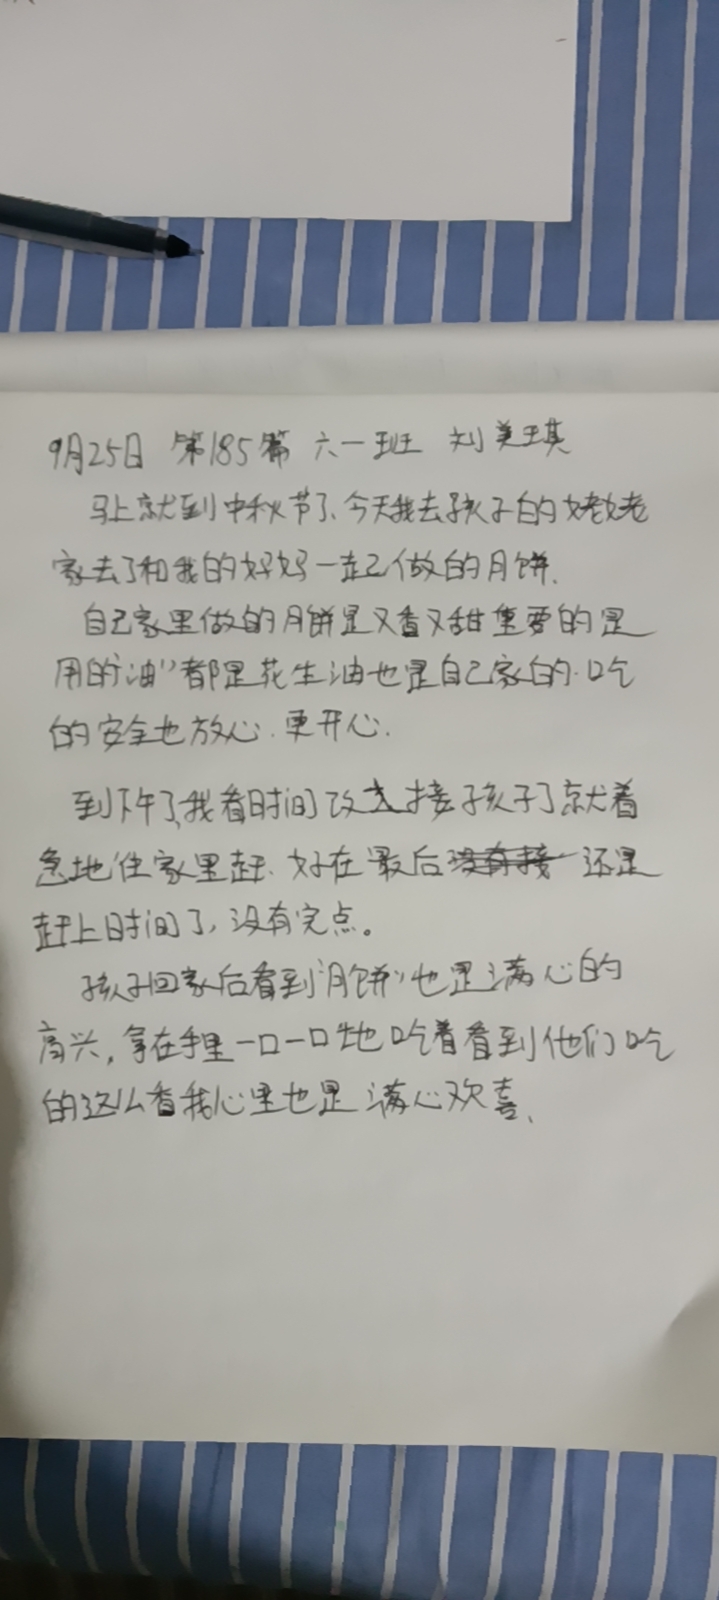 9月25日 第185篇 六一班 刘美琪
马上就到中秋节了、今天我去孩子的姥姥
家去了和我的好妈一起做的月饼.
自己家里做的月饼是又香又甜重要的是
用的“油”都是花生油也是自己家的.吃
的安全也放心.更开心.
到下午了、我看时间改去接孩子了就着
急地住家里赶.好在最后还是
赶上时间了,没有完点。
孩子回家后看到“月饼”也是满心的
高兴,拿在手里一口一口地吃着看到他们吃
的这么香我心里也是满心欢喜、